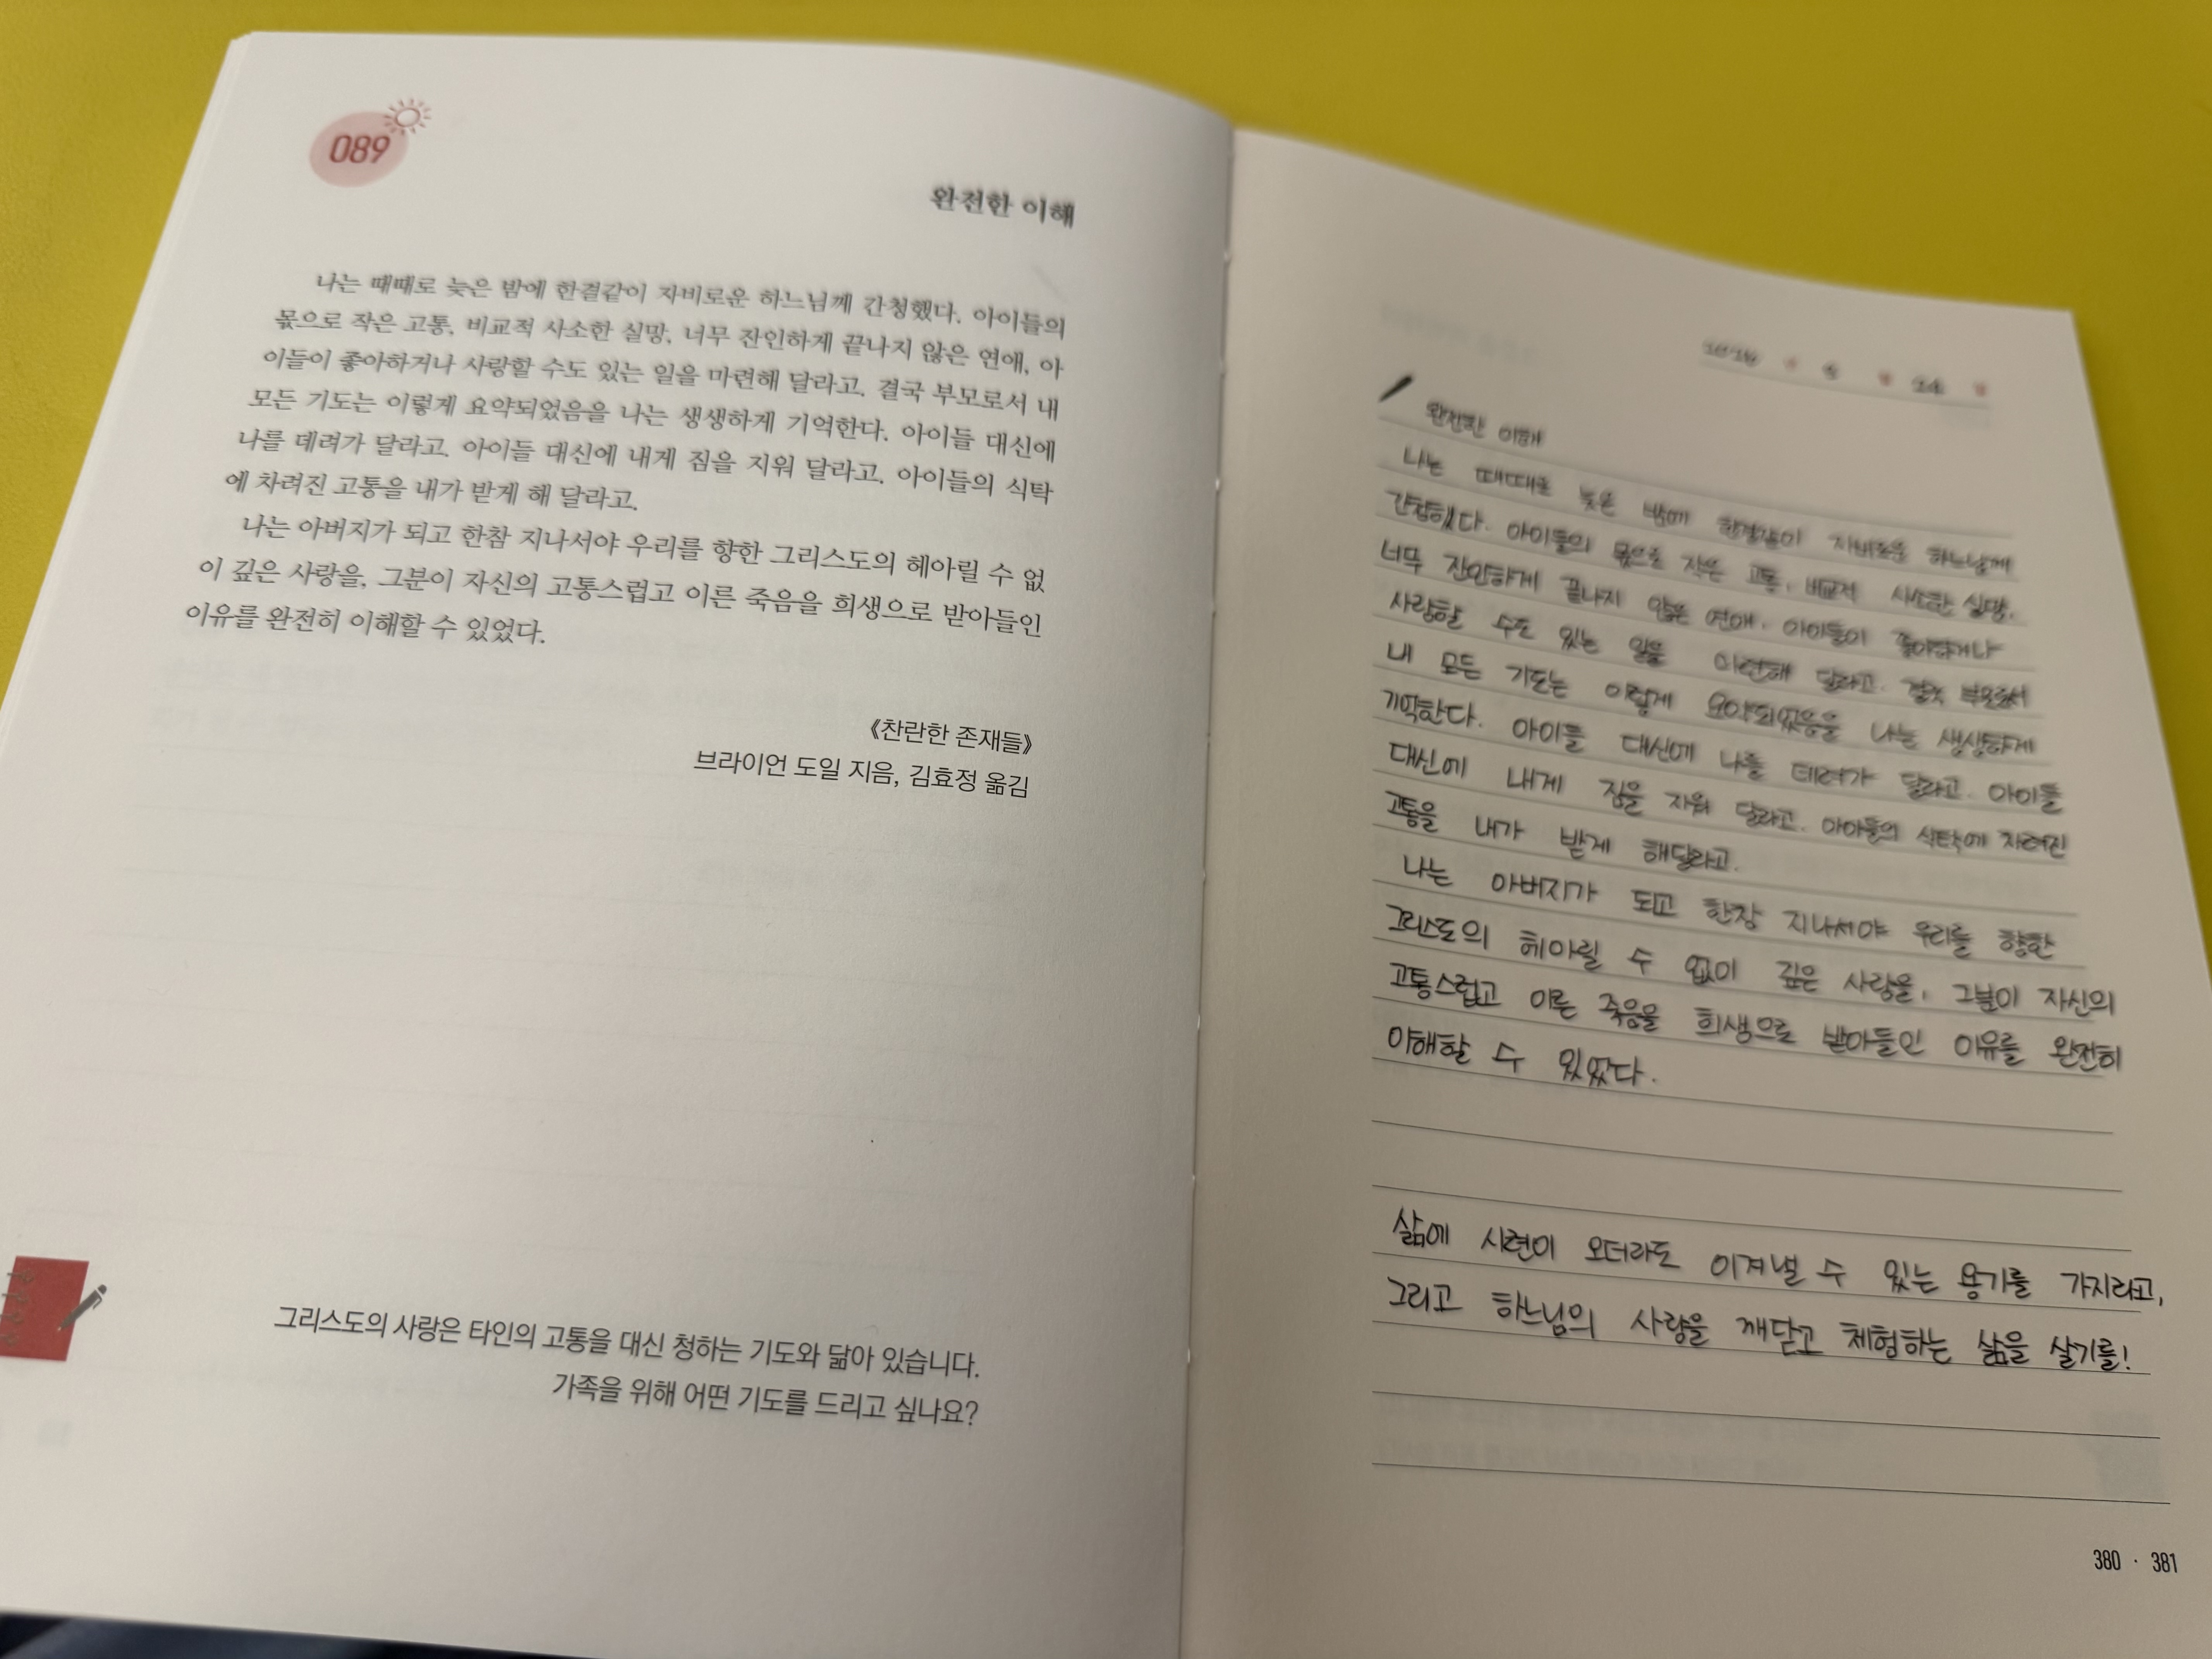 089
완전한 이해
나는 때때로 늦은 밤에 한결같이 자비로운 하느님께 간청했다. 아이들의
몫으로 작은 고통, 비교적 사소한 실망, 너무 잔인하게 끝나지 않은 연애, 아
이들이 좋아하거나 사랑할 수도 있는 일을 마련해 달라고. 결국 부모로서 내
모든 기도는 이렇게 요약되었음을 나는 생생하게 기억한다. 아이들 대신에
나를 데려가 달라고. 아이들 대신에 내게 짐을 지워 달라고. 아이들의 식탁
에 차려진 고통을 내가 받게 해 달라고.
나는 아버지가 되고 한참 지나서야 우리를 향한 그리스도의 헤아릴 수 없
이 깊은 사랑을, 그분이 자신의 고통스럽고 이른 죽음을 희생으로 받아들인
이유를 완전히 이해할 수 있었다.
《찬란한 존재들》
브라이언 도일 지음, 김효정 옮김
그리스도의 사랑은 타인의 고통을 대신 청하는 기도와 닮아 있습니다.
가족을 위해 어떤 기도를 드리고 싶나요?
완전한 이해
나는 때때로 늦은 밤에 한결같이 자비로운 하느님께
간청했다. 아이들의 몫으로 작은 고통, 비교적 사소한 실망,
너무 잔인하게 끝나지 않은 연애, 아이들이 좋아하거나
사랑할 수도 있는 일을 마련해 달라고. 결국 부모로서
내 모든 기도는 이렇게 요약되었음을 나는 생생하게
기억한다. 아이들 대신에 나를 데려가 달라고. 아이들
대신에 내게 짐을 지워 달라고. 아이들의 식탁에 차려진
고통을 내가 받게 해달라고.
나는 아버지가 되고 한참 지나서야 우리를 향한
그리스도의 헤아릴 수 없이 깊은 사랑을, 그분이 자신의
고통스럽고 이른 죽음을 희생으로 받아들인 이유를 완전히
이해할 수 있었다.
삶에 시련이 오더라도 이겨낼 수 있는 용기를 가지라고,
그리고 하느님의 사랑을 깨닫고 체험하는 삶을 살기를!
380 · 381